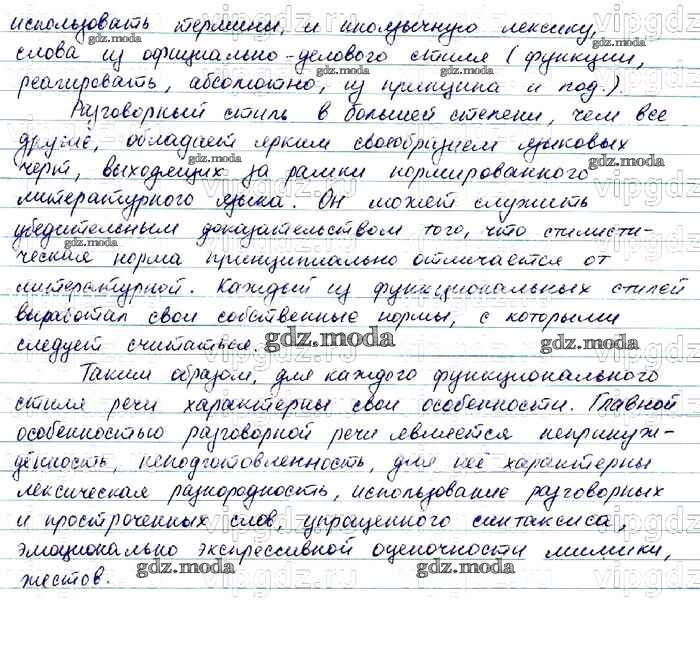 использовать термины, и иноязычную лексику,
слова из официально-делового стиля (функции,
реагировать, абсолютно, из принципа и под.).
Разговорный стиль в большей степени, чем все
другие, обладает ярким своеобразием языковых
черт, выходящих за рамки нормированного
литературного языка. Он может служить
убедительным доказательством того, что стилисти-
ческая норма принципиально отличается от
литературной. Каждый из функциональных стилей
выработал свои собственные нормы, с которыми
следует считаться.
gdz.moda
Таким образом, для каждого функционального
стиля речи характерны свои особенности. Главной
особенностью разговорной речи является непринуж-
дённость, неподготовленность, для неё характерны
лексическая разнородность, использование разговорных
и простроченных слов, упращенного синтаксиса,
эмоционально экспрессивной оценочности мимики,
жестов.
gdz.moda